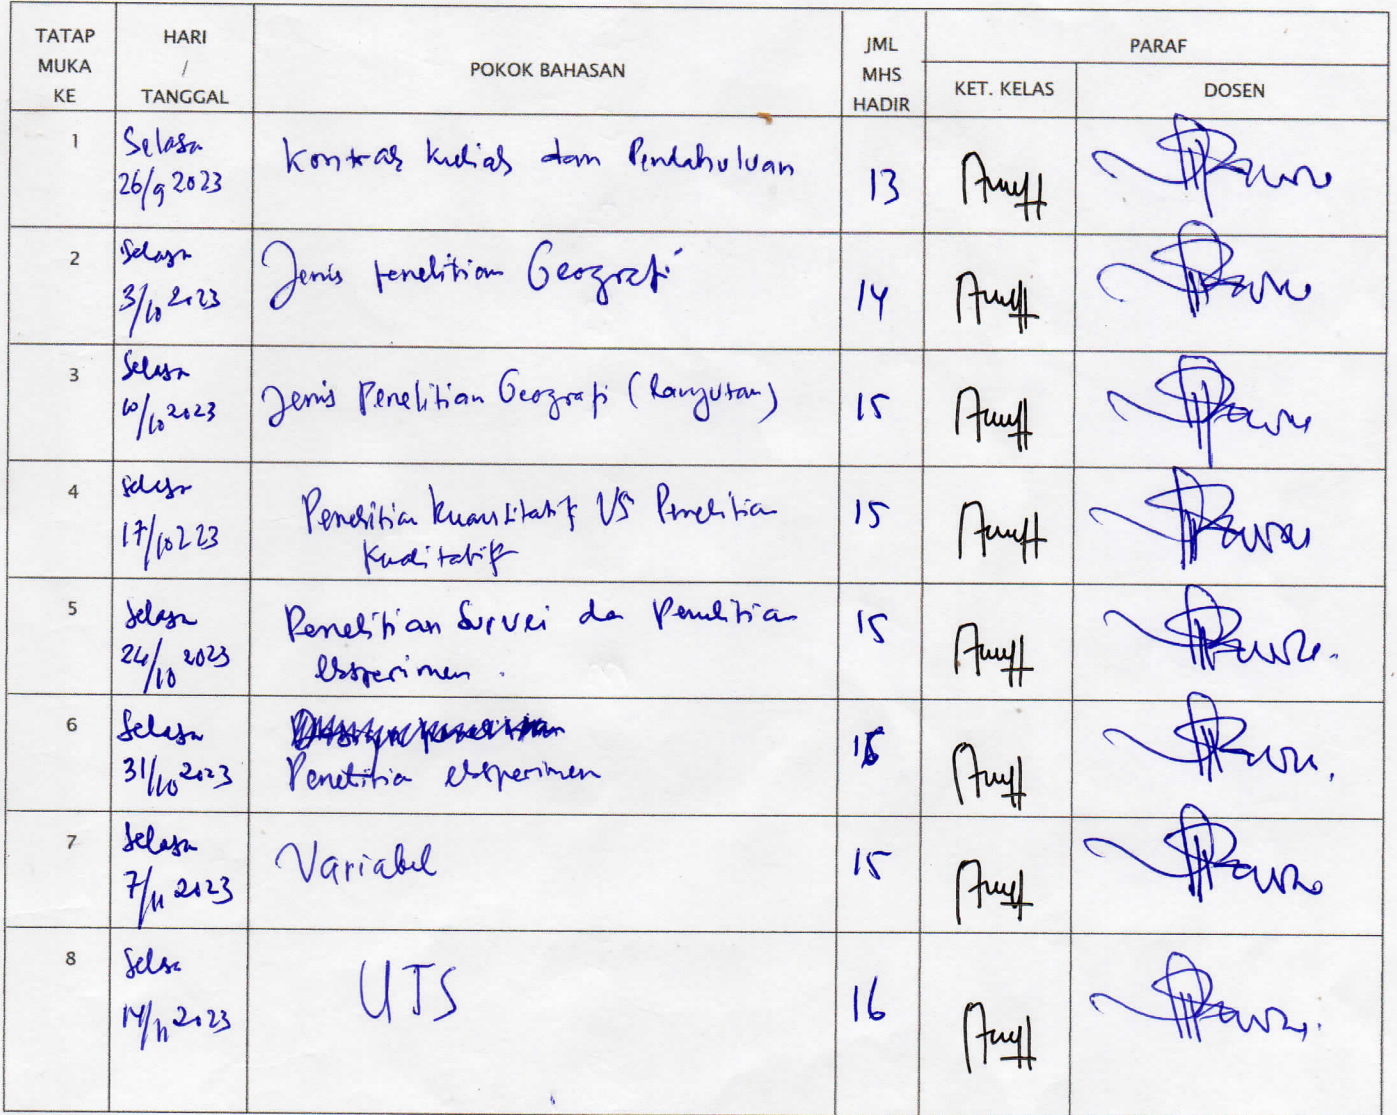 TATAP MUKA KE HARI / TANGGAL POKOK BAHASAN JML MHS HADIR PARAF
KET. KELAS DOSEN
1 Selasa 26/9 2023 Kontrak Kuliah dan Pendahuluan 13
2 Selasa 3/10 2023 Jenis penelitian Geografi 14
3 Selasa 10/10 2023 Jenis Penelitian Geografi (Lanjutan) 15
4 Selasa 17/10 223 Penelitian kuantitatif VS Penelitian 15
kualitatif
5 Selasa 24/10 2023 Penelitian Survei da Penelitian 15
eksperimen.
6 Selasa 31/10 2023
Penelitia eksperimen
7 Selasa 7/11 2023 Variabel 15
8 Selasa 14/11 2023 UTS 16